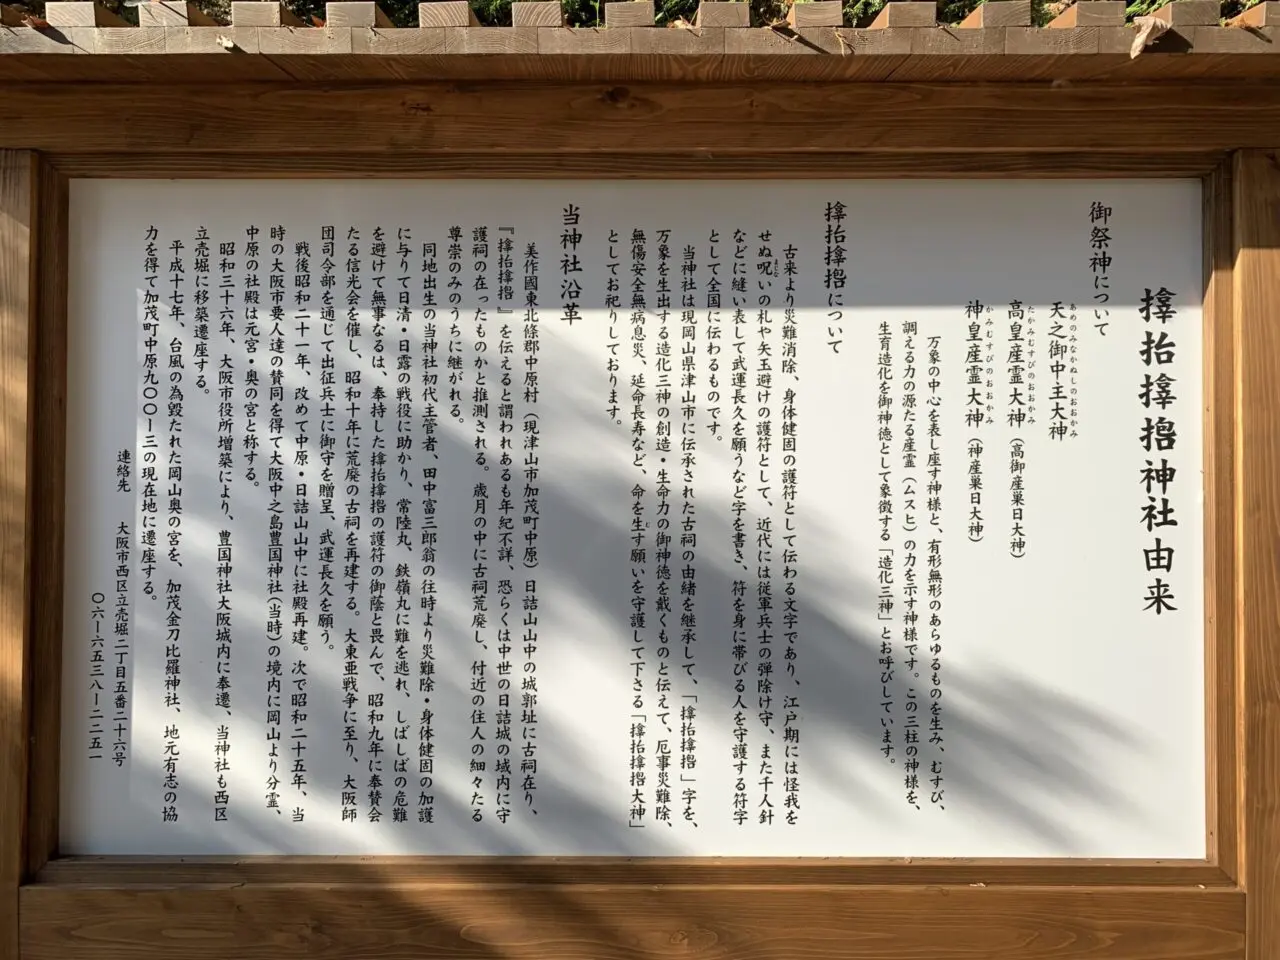 𪮷抬𪮷𪮇神社由来
御祭神について
天之御中主大神
あめのみなかぬしのおおかみ
高皇産霊大神(高御産巣日大神)
たかみむすびのおおかみ
神皇産霊大神(神産巣日大神)
かみむすびのおおかみ
万象の中心を表し座す神様と、有形無形のあらゆるものを生み、むすび、
調える力の源たる産霊(ムスヒ)の力を示す神様です。この三柱の神様を、
生育造化を御神徳として象徴する「造化三神」とお呼びしています。
𪮷抬𪮷𪮇について
古来より災難消除、身体健固の護符として伝わる文字であり、江戸期には怪我を
せぬ呪いの札や矢玉避けの護符として、近代には従軍兵士の弾除け守、また千人針
などに縫い表して武運長久を願うなど字を書き、符を身に帯びる人を守護する符字
として全国に伝わるものです。
当神社は現岡山県津山市に伝承された古祠の由緒を継承して、「𪮷抬𪮷𪮇」字を、
万象を生出する造化三神の創造・生命力の御神徳を戴くものと伝えて、厄事災難除、
無傷安全無病息災、延命長寿など、命を生す願いを守護して下さる「𪮷抬𪮷𪮇大神」
としてお祀りしております。
当神社沿革
美作國東北條郡中原村(現津山市加茂町中原)日詰山山中の城郭址に古祠在り、
『𪮷抬𪮷𪮇』を伝えると謂われあるも年紀不詳、恐らくは中世の日詰城の域内に守
護祠の在ったものかと推測される。歳月の中に古祠荒廃し、付近の住人の細々たる
尊崇のみのうちに継がれる。
同地出生の当神社初代主管者、田中富三郎翁の往時より災難除・身体健固の加護
に与りて日清・日露の戦役に助かり、常陸丸、鉄嶺丸に難を逃れ、しばしばの危難
を避けて無事なるは、奉持した𪮷抬𪮷𪮇の護符の御蔭と畏んで、昭和九年に奉賛会
たる信光会を催し、昭和十年に荒廃の古祠を再建する。大東亜戦争に至り、大阪師
団司令部を通じて出征兵士に御守を贈呈、武運長久を願う。
戦後昭和二十一年、改めて中原・日詰山山中に社殿再建。次で昭和二十五年、当
時の大阪市要人達の賛同を得て大阪中之島豊国神社(当時)の境内に岡山より分霊、
中原の社殿は元宮・奥の宮と称する。
昭和三十六年、大阪市役所増築により、豊国神社大阪城内に奉遷、当神社も西区
立売堀に移築遷座する。
平成十七年、台風の為毀たれた岡山奥の宮を、加茂金刀比羅神社、地元有志の協
力を得て加茂町中原九〇〇ー三の現在地に遷座する。
連絡先 大阪市西区立売堀二丁目五番二十六号
〇六ー六五三八ー二二五一